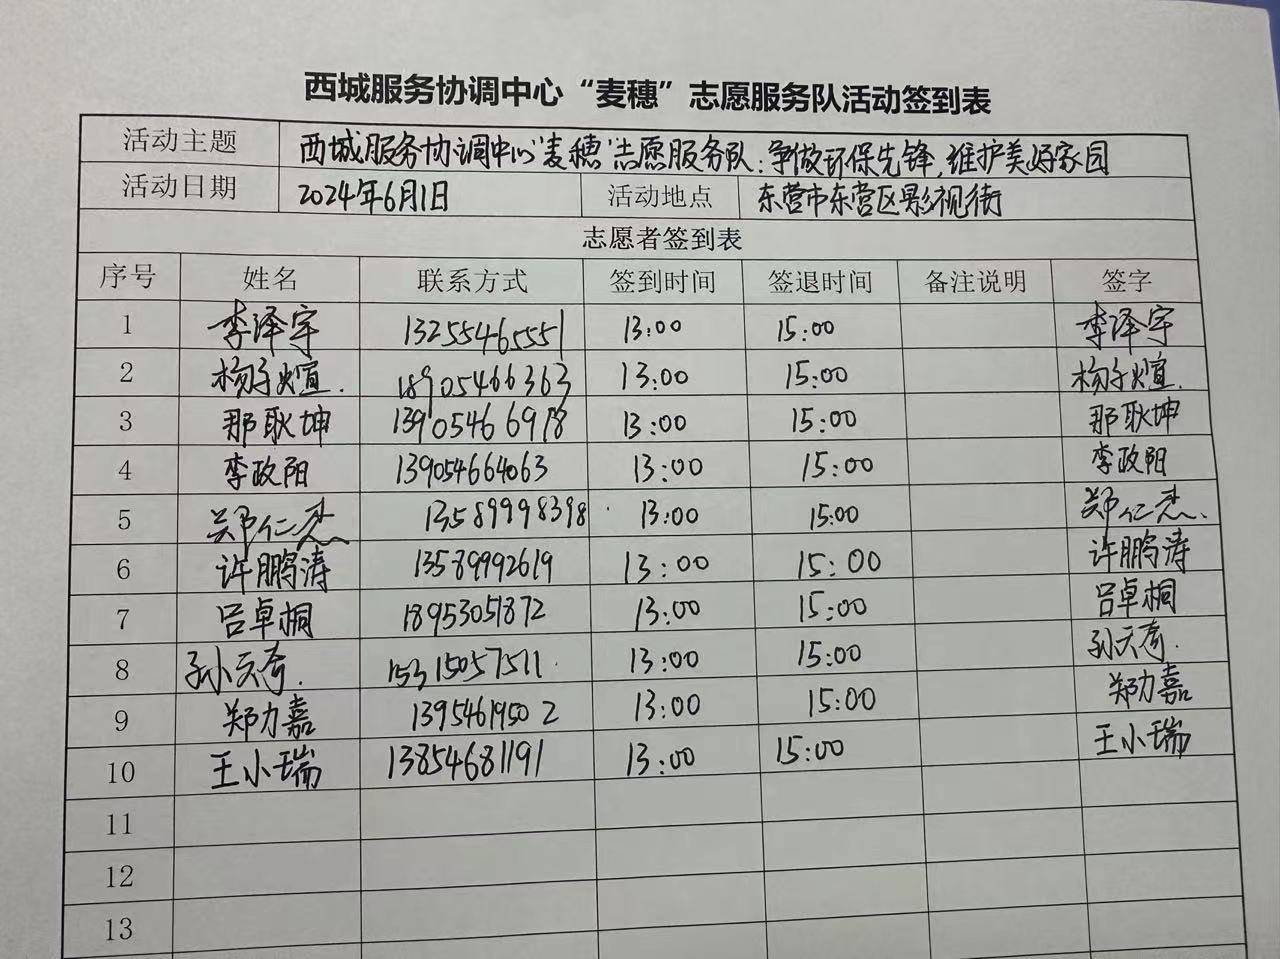 西城服务协调中心“麦穗”志愿服务队活动签到表
活动主题 西城服务协调中心“麦穗”志愿服务队:争做环保先锋,维护美好家园
活动日期 2024年6月1日 活动地点 东营市东营区影视街
志愿者签到表
序号 姓名 联系方式 签到时间 签退时间 备注说明 签字
1 李泽宇 13255465551 13:00 15:00 李泽宇
2 杨子煊. 18905466363 13:00 15:00 杨子煊.
3 那耿坤 13905466978 13:00 15:00 那耿坤
4 李政阳 139054664063 13:00 15:00 李政阳
5 郑仁杰 13589998398 13:00 15:00 郑仁杰.
6 许鹏涛 13589992619 13:00 15:00 许鹏涛
7 吕卓桐 18953051872 13:00 15:00 吕卓桐
8 孙天奇. 15315057511 13:00 15:00 孙天奇.
9 郑力嘉 13954619502 13:00 15:00 郑力嘉
10 王小瑞 13854681191 13:00 15:00 王小瑞
11
12
13